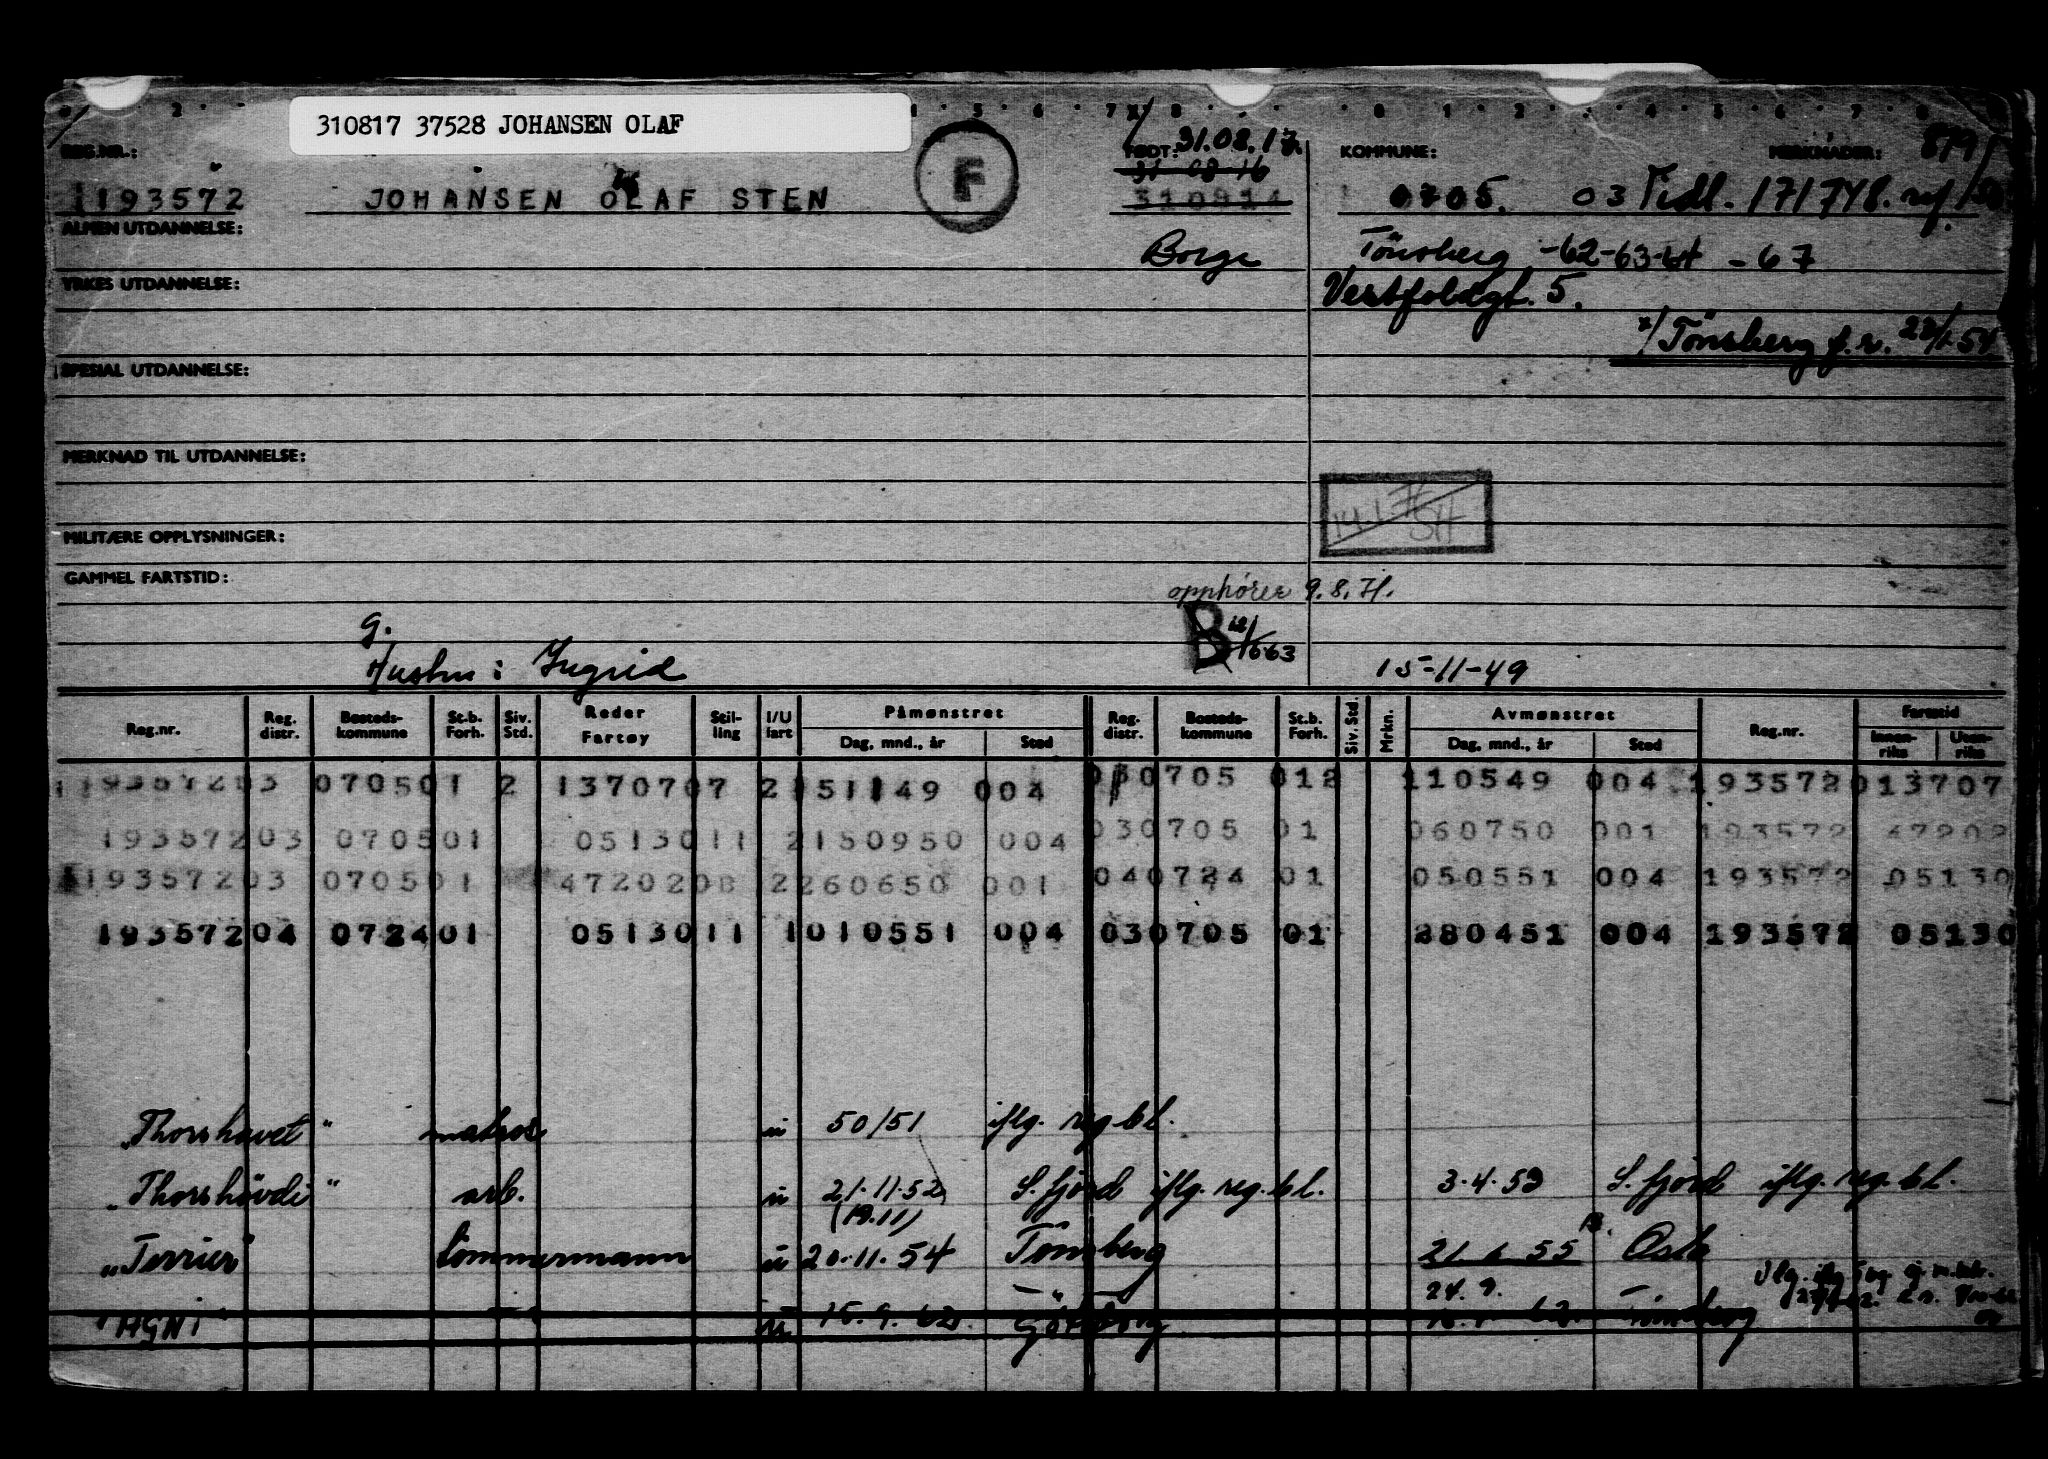 310817 37528 JOHANSEN OLAF
REG.NR.:
1193572 JOHANSEN OLAF STEN
F
FØDT: 31.08.17.
31 08 16
310914
Borge
KOMMUNE: MERKNADER:
0705. 03 Tidl. 171748.
Tönsberg -62-63-64 - 67
Vestfoldgt. 5.
x/ Tönsberg f.r. 22/1-54
ALMEN UTDANNELSE:
YRKES UTDANNELSE:
SPESIAL UTDANNELSE:
MERKNAD TIL UTDANNELSE:
MILITÆRE OPPLYSNINGER:
GAMMEL FARTSTID:
14.1.76
SH
opphører 9.8.71.
B 12/6 63
g.
Hustru: Ingrid
15-11-49
Reg.nr. Reg. distr. Bosteds-kommune St.b. Forh. Siv. Std. Reder Fartøy Stil-ling I/U fart Påmønstret Dag, mnd., år Sted Reg. distr. Bosteds-kommune St.b. Forh. Siv. Std. Mrkn. Avmønstret Dag, mnd., år Sted Reg.nr. Fartstid Innen-riks Uten-riks
1193572 03 0705 01 2 13707 07 2 151149 004 030705 012 110549 004 193572 013707
193572 03 0705 01 05130 11 2 150950 004 030705 01 060750 001 193572 47202
193572 03 0705 01 47202 08 2 260650 001 040724 01 050551 004 193572 05130
193572 04 0724 01 05130 11 1 010551 004 030705 01 280451 004 193572 05130
"Thorshavet" matros u 50/51 iflg. reg bl.
"Thorshövdi" arb. u 21.11.52 S.fjord iflg. reg. bl. 3.4.53 S.fjord iflg. reg. bl.
(19.11)
"Terrier" tömmermann u 20.11.54 Tönsberg 21 6 55 Oslo
24.9.
"AGNI" u 15.9.62. Göteborg Tönsberg